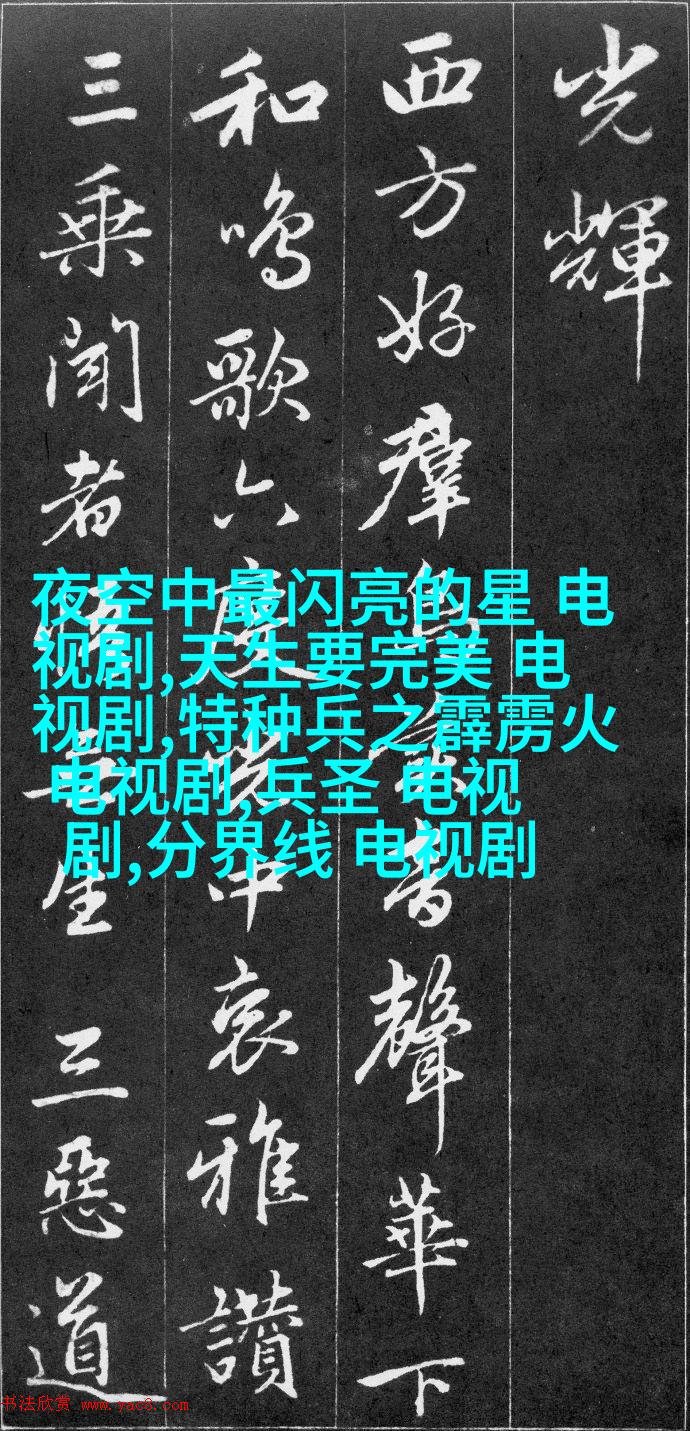 光輝
西方好羣鳥音聲華下
和鳴歌六度中哀雅讚
三乘聞者生 三惡道
夜空中最闪亮的星 电
视剧,天生要完美 电
视剧,特种兵之霹雳火
电视剧,兵圣 电视
剧,分界线 电视剧
书法欣赏 www.yac8.com